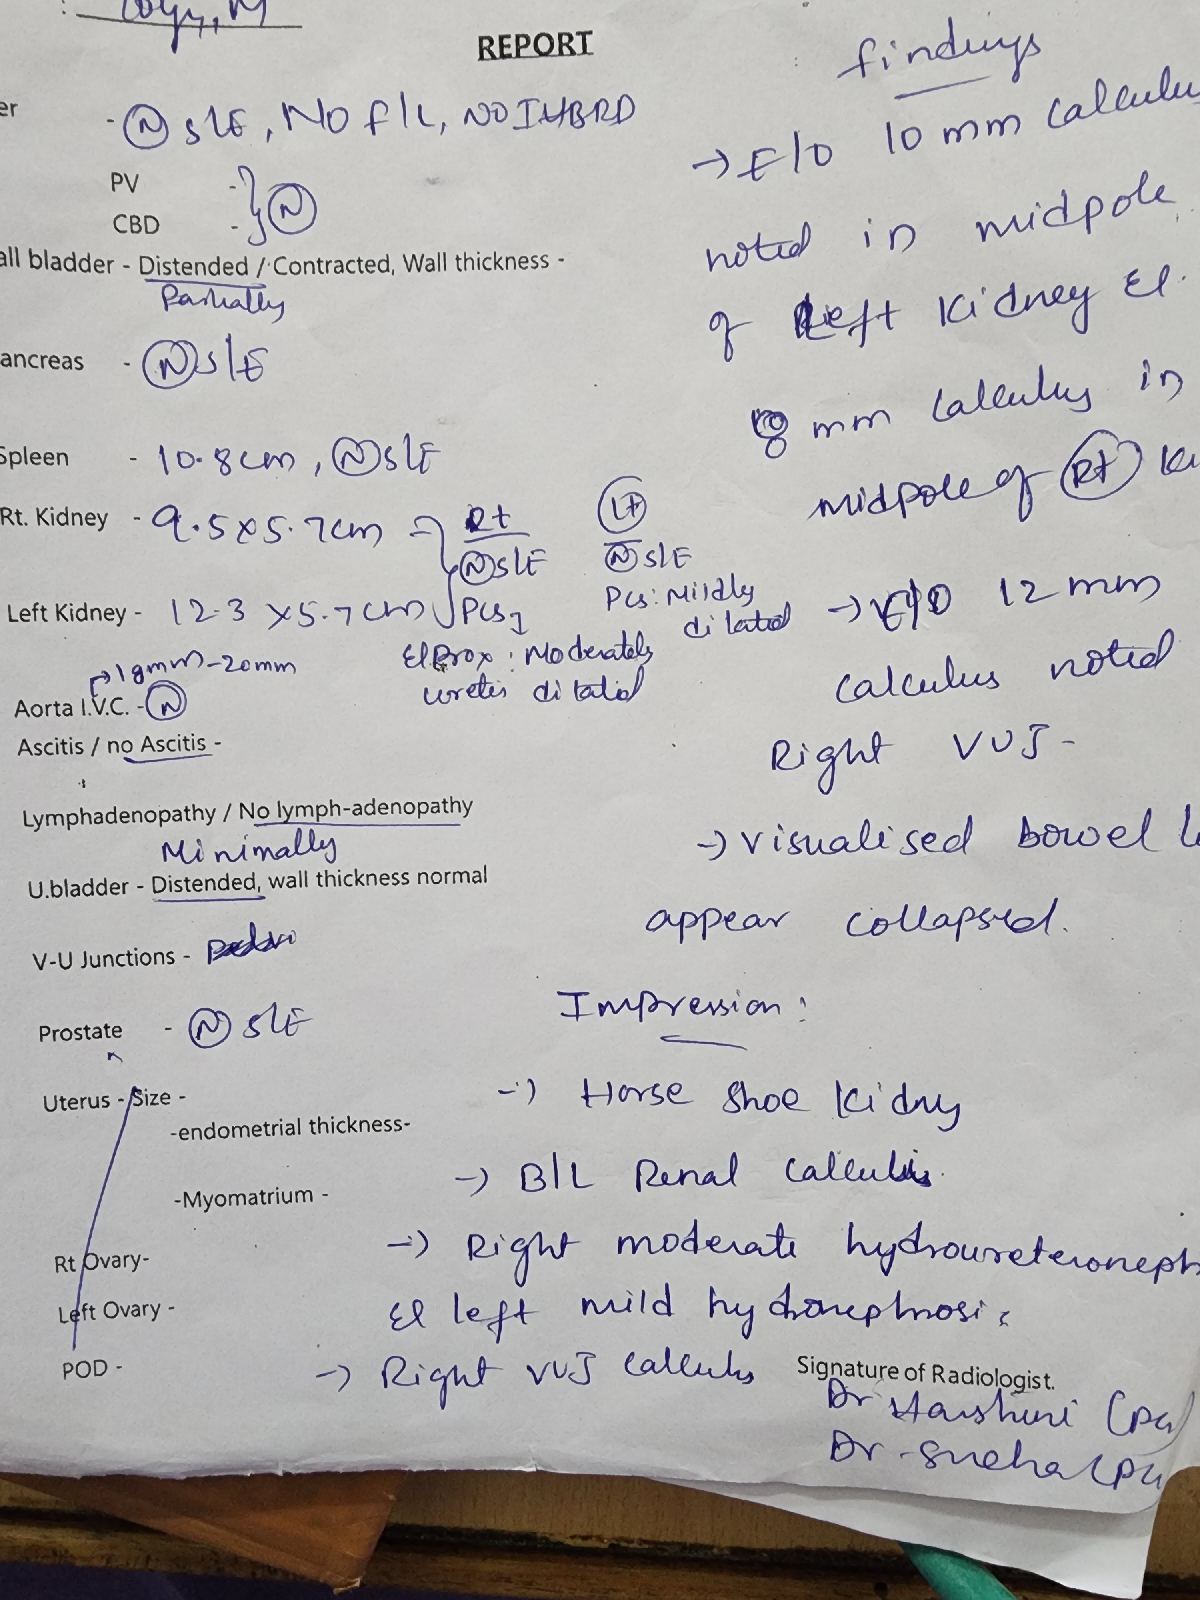 REPORT
er - (N) S/E, NO F/L, NO IHBRD
PV -
CBD - } (N)
all bladder - Distended / Contracted, Wall thickness -
Partially
ancreas - (N) S/E
Spleen - 10.8 cm, (N) S/E
Rt. Kidney - 9.5 x 5.7 cm
Left Kidney - 12.3 x 5.7 cm
Rt
(N) S/E
PCS
El Prox : Moderately
ureter dilated
Lt
(N) S/E
PCS: Mildly
dilated
18mm-20mm
Aorta I.V.C. - (N)
Ascitis / no Ascitis -
Lymphadenopathy / No lymph-adenopathy
Minimally
U.bladder - Distended, wall thickness normal
V-U Junctions -
Prostate - (N) S/E
Uterus - Size -
-endometrial thickness-
-Myomatrium -
Rt Ovary-
Left Ovary -
POD -
findings
→ E/O 10 mm calculu
noted in midpole
of Left Kidney El
8 mm calculus in
midpole of (Rt) Ki
→ E/O 12 mm
calculus noted
Right VUJ -
→ visualised bowel l
appear collapsed.
Impression :
→ Horse Shoe Kidny
→ B/L Renal calculus.
→ Right moderate hydroureteroneph
El left mild hydronephrosis
→ Right VUJ calculus
Signature of Radiologist.
Dr Harshini (PG)
Dr. Sneha (PG